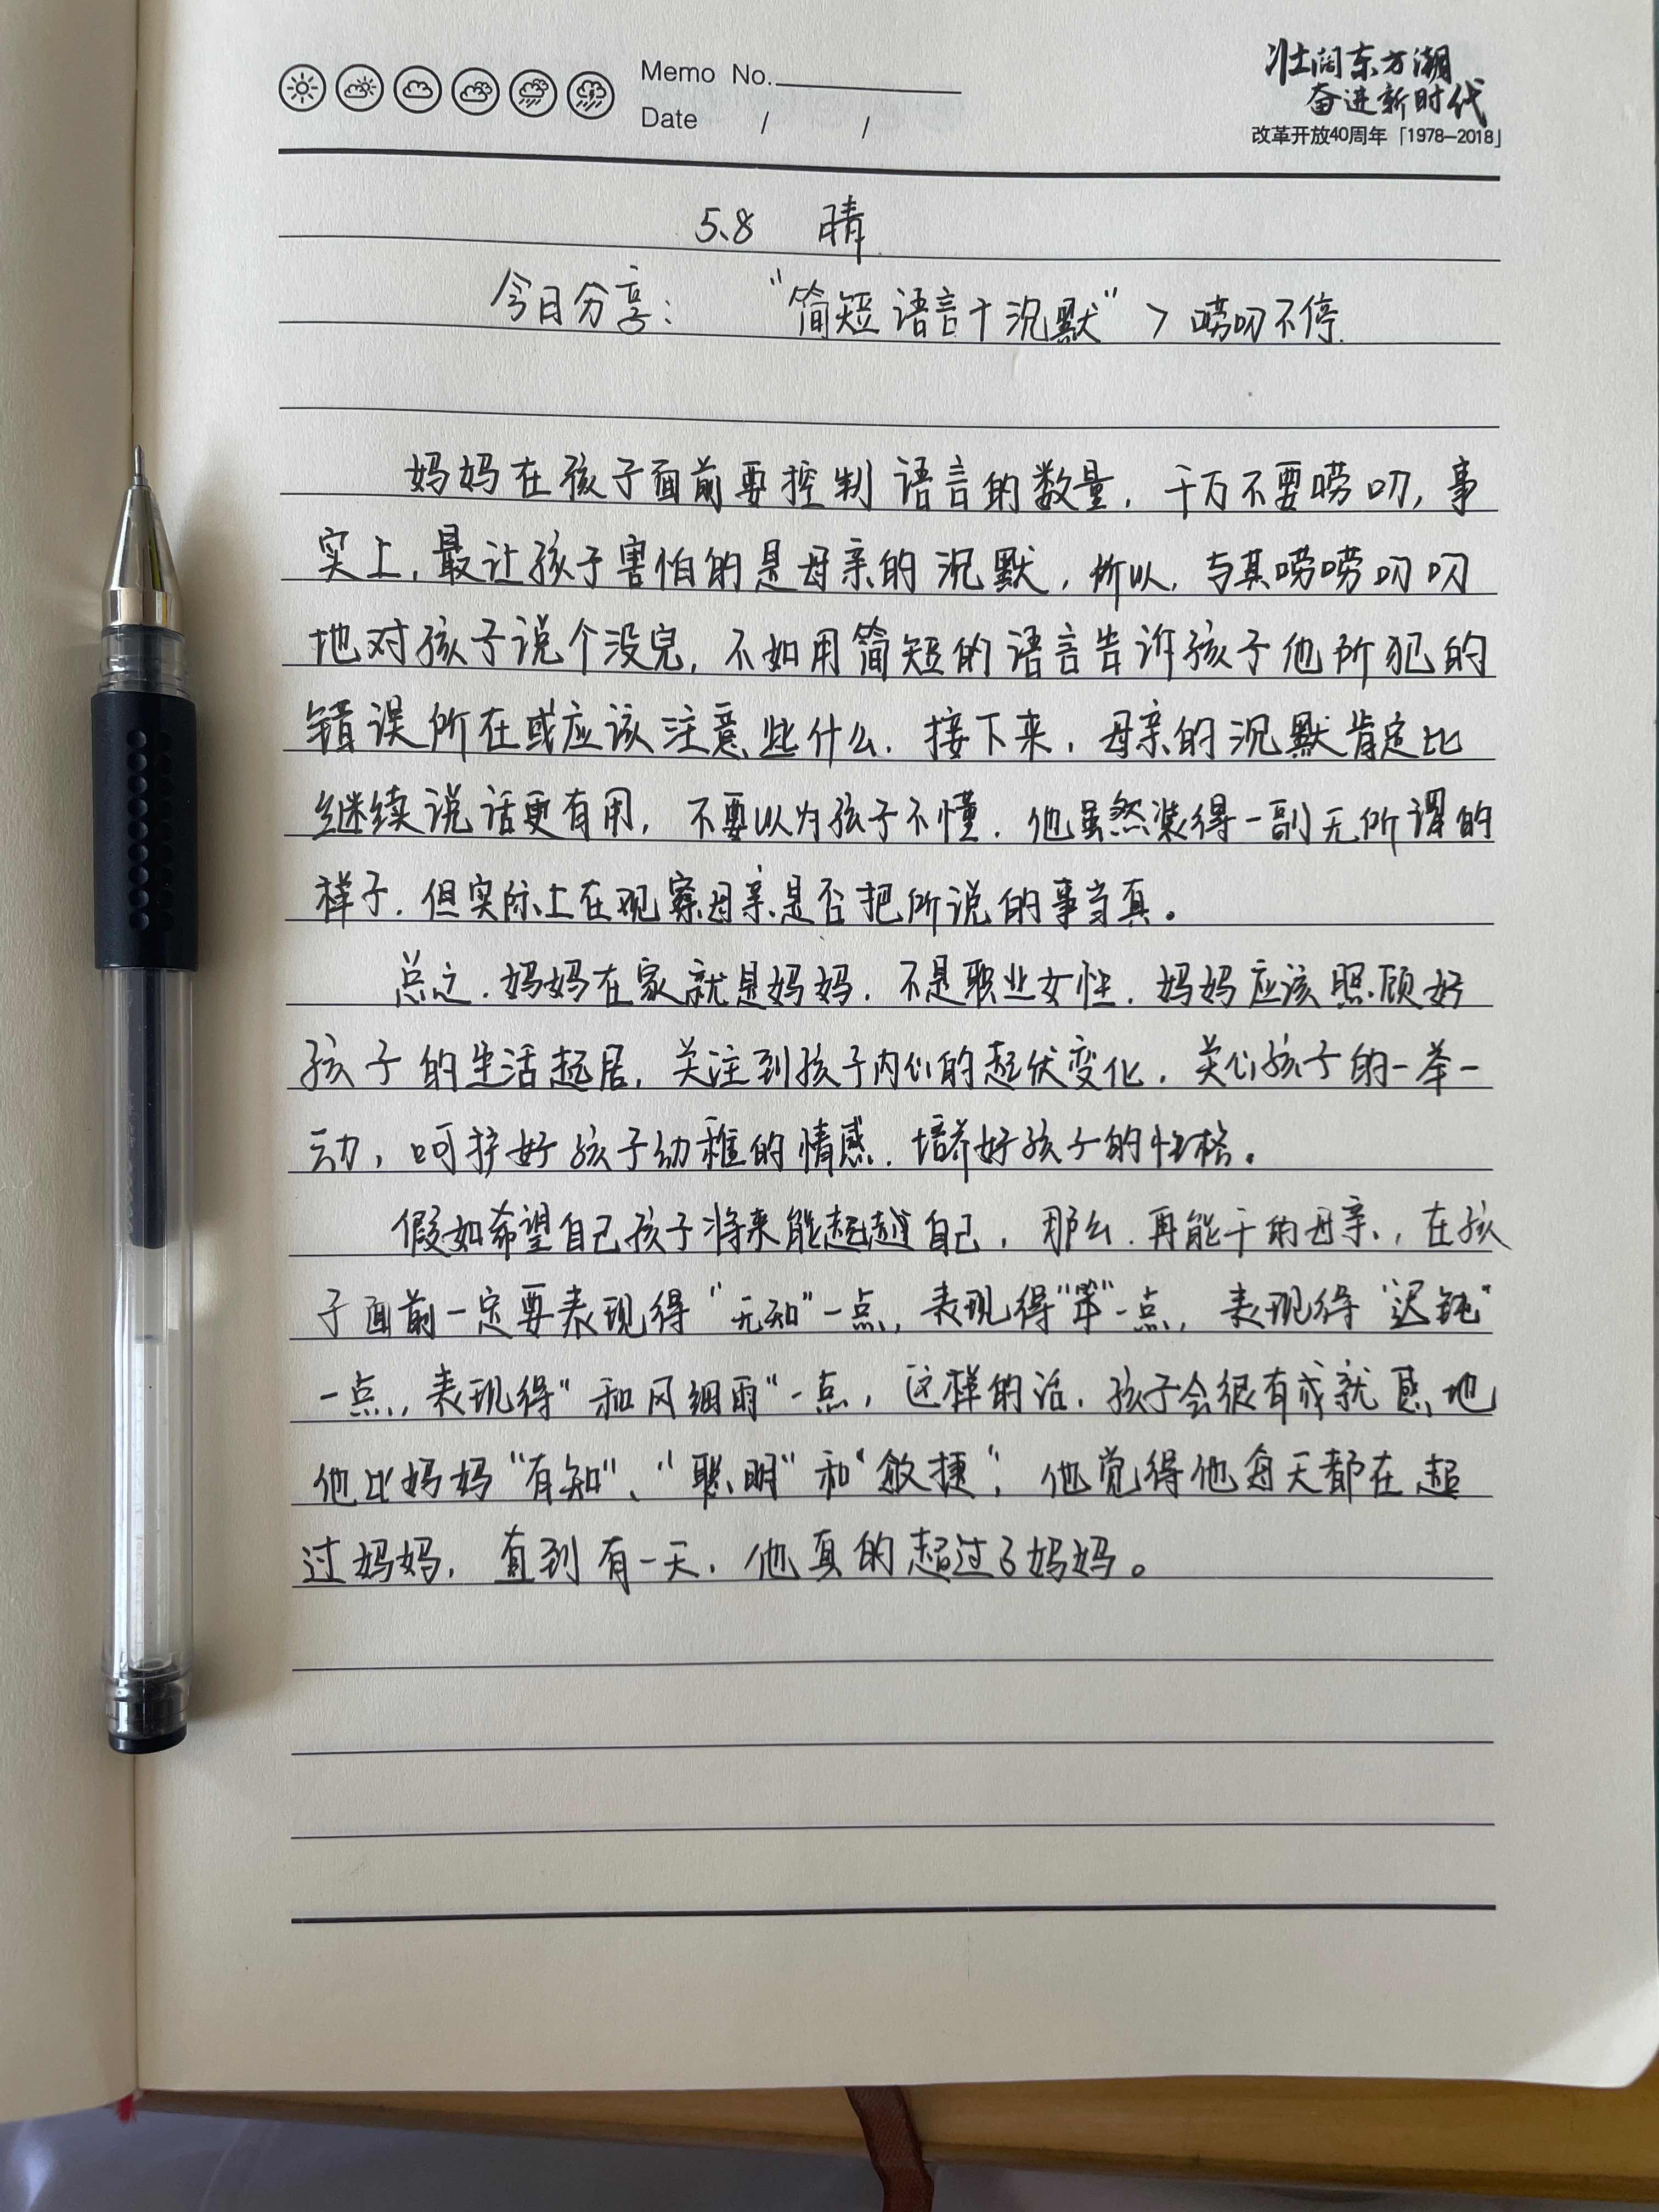 Memo No.
Date / /
壮阔东方潮
奋进新时代
改革开放40周年「1978-2018」
5.8 晴
今日分享： “简短语言+沉默” > 唠叨不停.
妈妈在孩子面前要控制语言的数量，千万不要唠叨，事
实上，最让孩子害怕的是母亲的沉默，所以，与其唠唠叨叨
地对孩子说个没完，不如用简短的语言告诉孩子他所犯的
错误所在或应该注意些什么，接下来，母亲的沉默肯定比
继续说话更有用，不要以为孩子不懂，他虽然装得一副无所谓的
样子，但实际上在观察母亲是否把所说的事当真。
总之，妈妈在家就是妈妈，不是职业女性，妈妈应该照顾好
孩子的生活起居，关注到孩子内心的起伏变化，关心孩子的一举一
动，呵护好孩子幼稚的情感，培养好孩子的性格。
假如希望自己孩子将来能超越自己，那么，再能干的母亲，在孩
子面前一定要表现得“无知”一点，表现得“笨”一点，表现得“迟钝”
一点，表现得“和风细雨”一点，这样的话，孩子会很有成就感地
他比妈妈“有知”、“聪明”和“敏捷”，他觉得他每天都在超
过妈妈，直到有一天，他真的超过了妈妈。